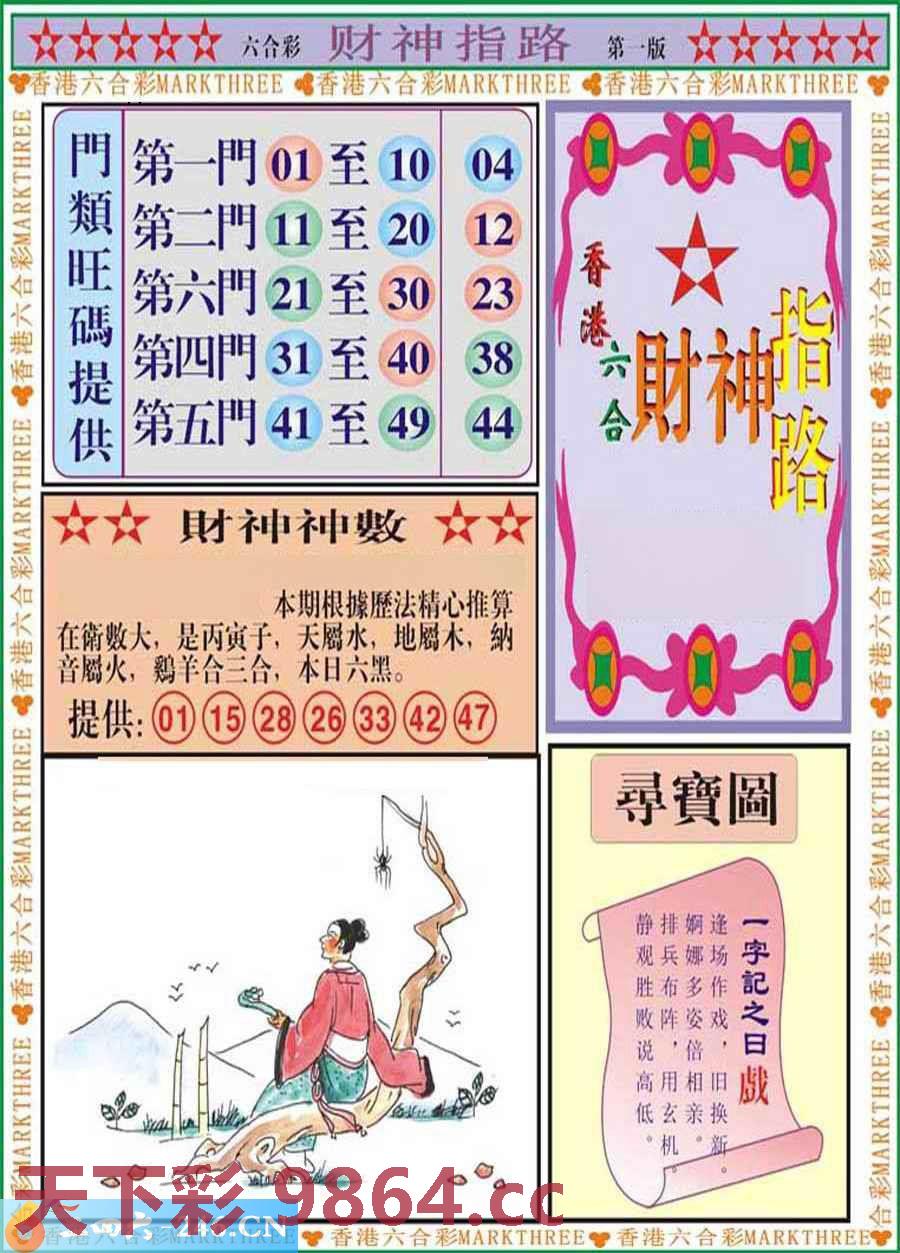 六合彩 财神指路 第一版
香港六合彩MARKTHREE 香港六合彩MARKTHREE 香港六合彩MARKTHREE
門類旺碼提供
第一門 01 至 10 04
第二門 11 至 20 12
第六門 21 至 30 23
第四門 31 至 40 38
第五門 41 至 49 44
香港六合財神指路
財神神數
本期根據歷法精心推算
在衛數大，是丙寅子，天屬水，地屬木，納
音屬火，鷄羊合三合，本日六黑。
提供: 01 15 28 26 33 42 47
尋寶圖
一字記之曰戲
逢场作戏，旧换新。
婀娜多姿倍相亲。
排兵布阵，用玄机。
静观胜败说高低。
天下彩 9864.cc
香港六合彩MARKTHREE 香港六合彩MARKTHREE 香港六合彩MARKTHREE